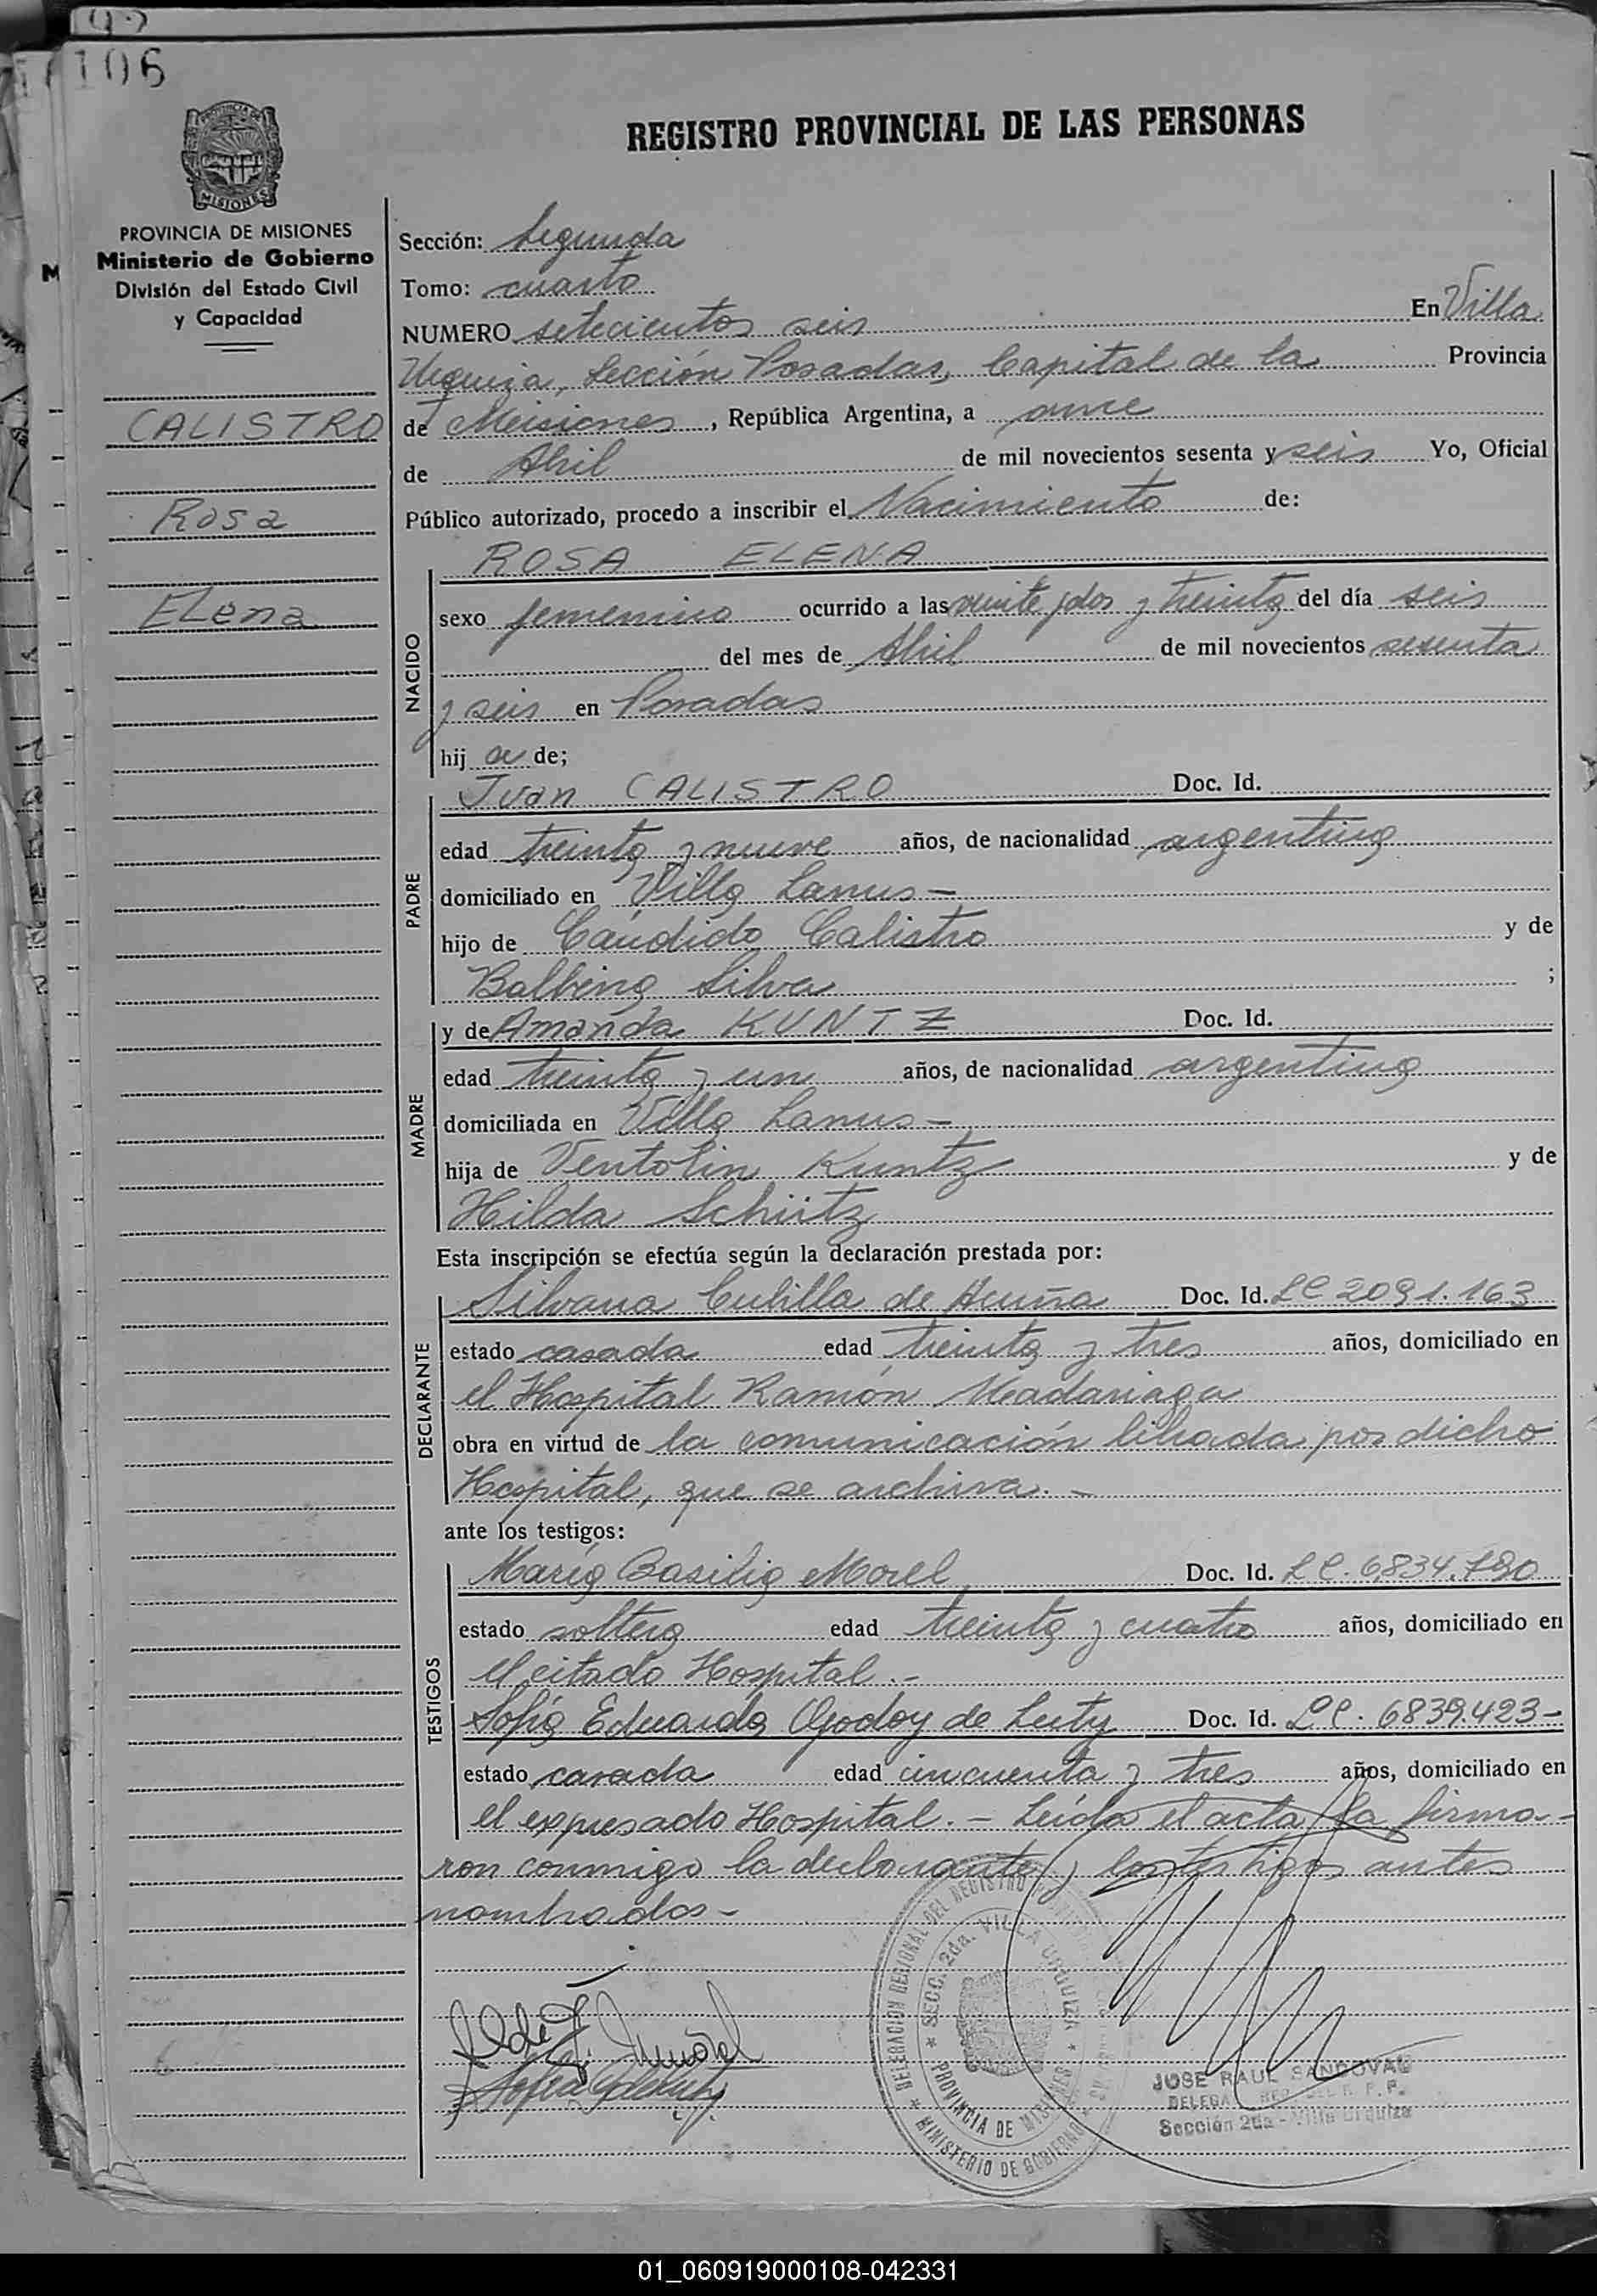 106
REGISTRO PROVINCIAL DE LAS PERSONAS
MISIONES
PROVINCIA DE MISIONES
Ministerio de Gobierno
División del Estado Civil
y Capacidad
CALISTRO
Rosa
ELena
Sección: Segunda
Tomo: cuarto
NUMERO setecientos seis En Villa
Urquiza, Sección Posadas, Capital de la Provincia
de Misiones, República Argentina, a once
de Abril de mil novecientos sesenta y seis Yo, Oficial
Público autorizado, procedo a inscribir el Nacimiento de:
NACIDO
ROSA ELENA
sexo femenino ocurrido a las veinte y dos y treinta del día seis
del mes de Abril de mil novecientos sesenta
y seis en Posadas
hij a de;
PADRE
Juan CALISTRO Doc. Id.
edad treinta y nueve años, de nacionalidad argentina
domiciliado en Villa Lanus -
hijo de Cándido Calistro y de
Balbina Silva ;
MADRE
y de Amanda KUNTZ Doc. Id.
edad treinta y un años, de nacionalidad argentina
domiciliada en Villa Lanus -
hija de Ventolin Kuntz y de
Hilda Schütz
Esta inscripción se efectúa según la declaración prestada por:
DECLARANTE
Silvana Cubilla de Acuña Doc. Id. LC 2091.163
estado casada edad treinta y tres años, domiciliado en
el Hospital Ramón Madariaga
obra en virtud de la comunicación librada por dicho
Hospital, que se archiva. -
ante los testigos:
TESTIGOS
María Basilia Morel Doc. Id. LC. 6.834.790
estado soltera edad treinta y cuatro años, domiciliado en
el citado Hospital. -
Sofía Eduarda Godoy de Leity Doc. Id. LC. 6839.423 -
estado casada edad cincuenta y tres años, domiciliado en
el expresado Hospital. - Leída el acta, la firma-
ron conmigo la declarante y los testigos antes
nombrados -
DELEGACION REGIONAL DEL REGISTRO
SECC. 2da. VILLA URQUIZA
PROVINCIA DE MISIONES
MINISTERIO DE GOBIERNO
JOSE RAUL SANDOVAL
Sección 2da - Villa Urquiza
01_060919000108-042331